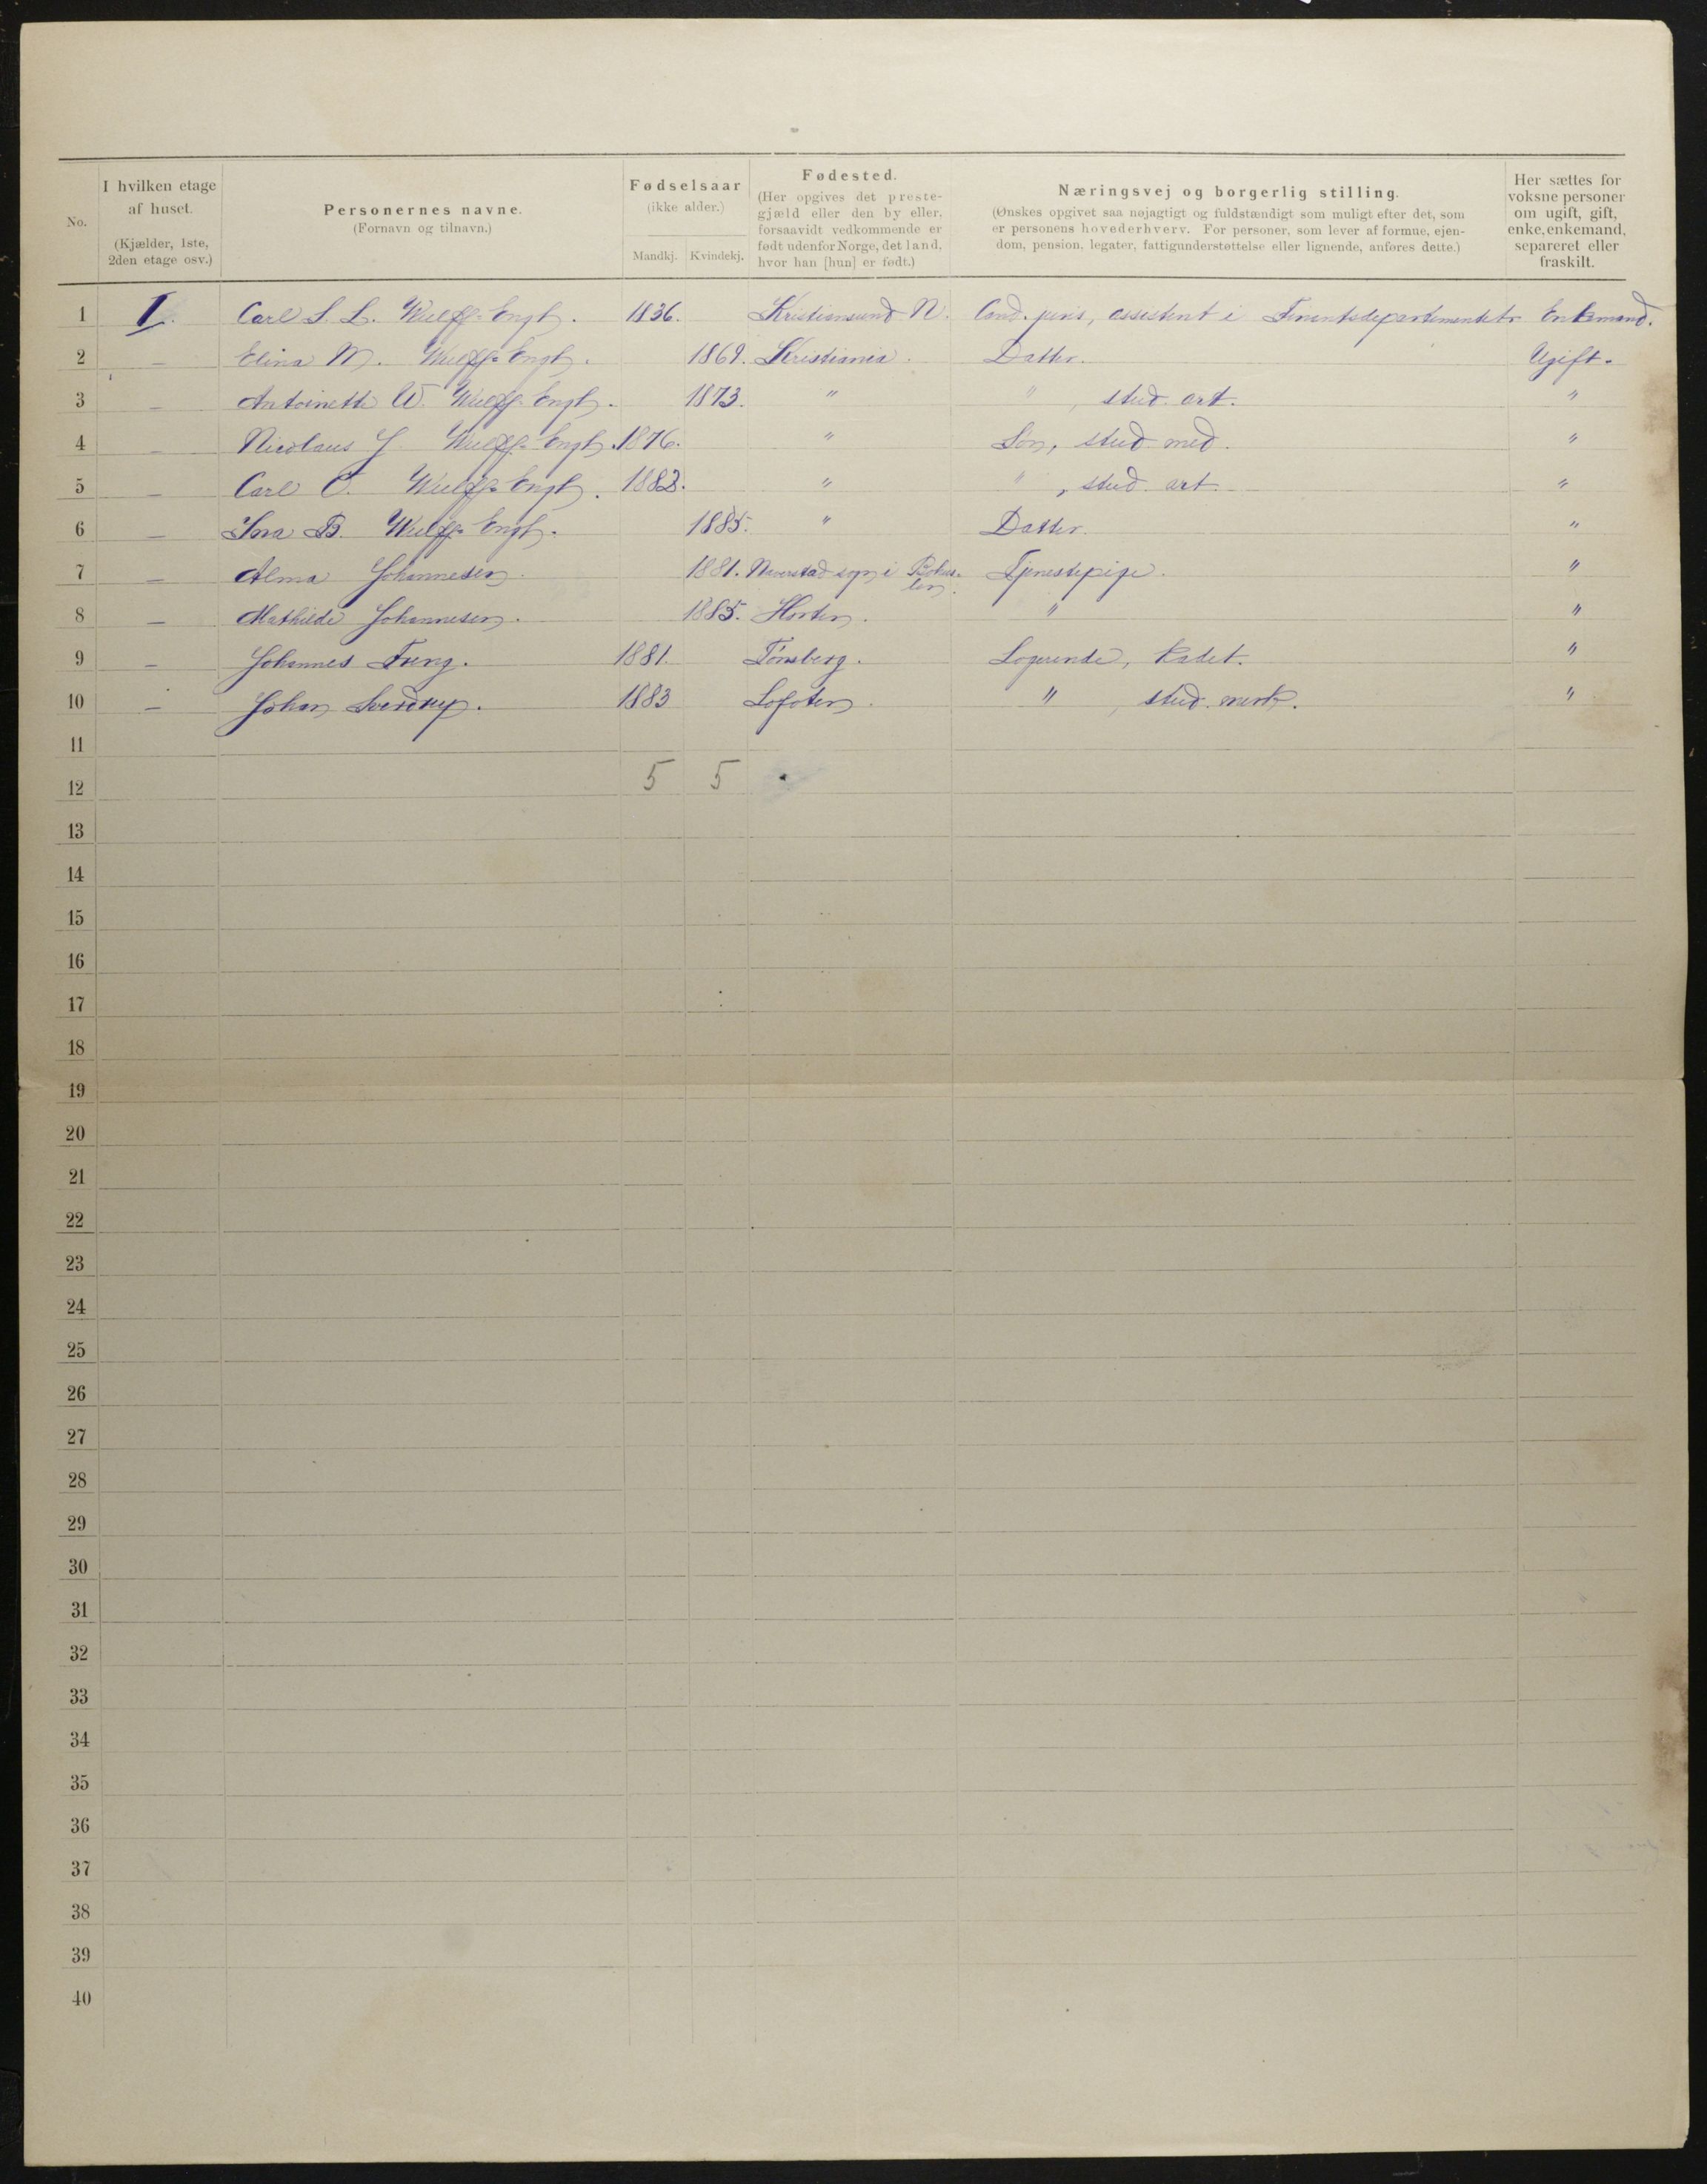 No.
I hvilken etage af huset. (Kjælder, 1ste, 2den etage osv.)
Personernes navne. (Fornavn og tilnavn.)
Fødselsaar (ikke alder.)
Mandkj. Kvindekj.
Fødested. (Her opgives det prestegjæld eller den by eller, forsaavidt vedkommende er født udenfor Norge, det land, hvor han [hun] er født.)
Næringsvej og borgerlig stilling.
(Ønskes opgivet saa nøjagtigt og fuldstændigt som muligt efter det, som
er personens hovederhverv. For personer, som lever af formue, ejen-
dom, pension, legater, fattigunderstøttelse eller lignende, anføres dette.)
Her sættes for voksne personer om ugift, gift, enke, enkemand, separeret eller fraskilt.
1 I. Carl S. L. Wulffs-Engh. 1836. Kristiansund N. Cand. juris, assistent i Finantsdepartementet Enkemand.
2 — Elina M. Wulffs-Engh. 1869. Kristiania. Datter. Ugift.
3 — Antoinette W. Wulffs-Engh. 1873. " " , stud. art. "
4 — Nicolaus J. Wulffs-Engh. 1876. " Søn, stud. med. "
5 — Carl C. Wulffs-Engh. 1882. " " , stud. art. "
6 — B. Wulffs-Engh. 1885. " Datter. "
7 — Alma Johannesen. 1881. Naverstad sogn i Bohus-len. Tjenestepige. "
8 — Mathilde Johannesen. 1885. Horten. " "
9 — Johannes Freng. 1881. Tønsberg. Logerende, kadet. "
10 — Johan Sverdrup. 1883 Lofoten. " , stud. merk. "
11
12 5 5
13
14
15
16
17
18
19
20
21
22
23
24
25
26
27
28
29
30
31
32
33
34
35
36
37
38
39
40